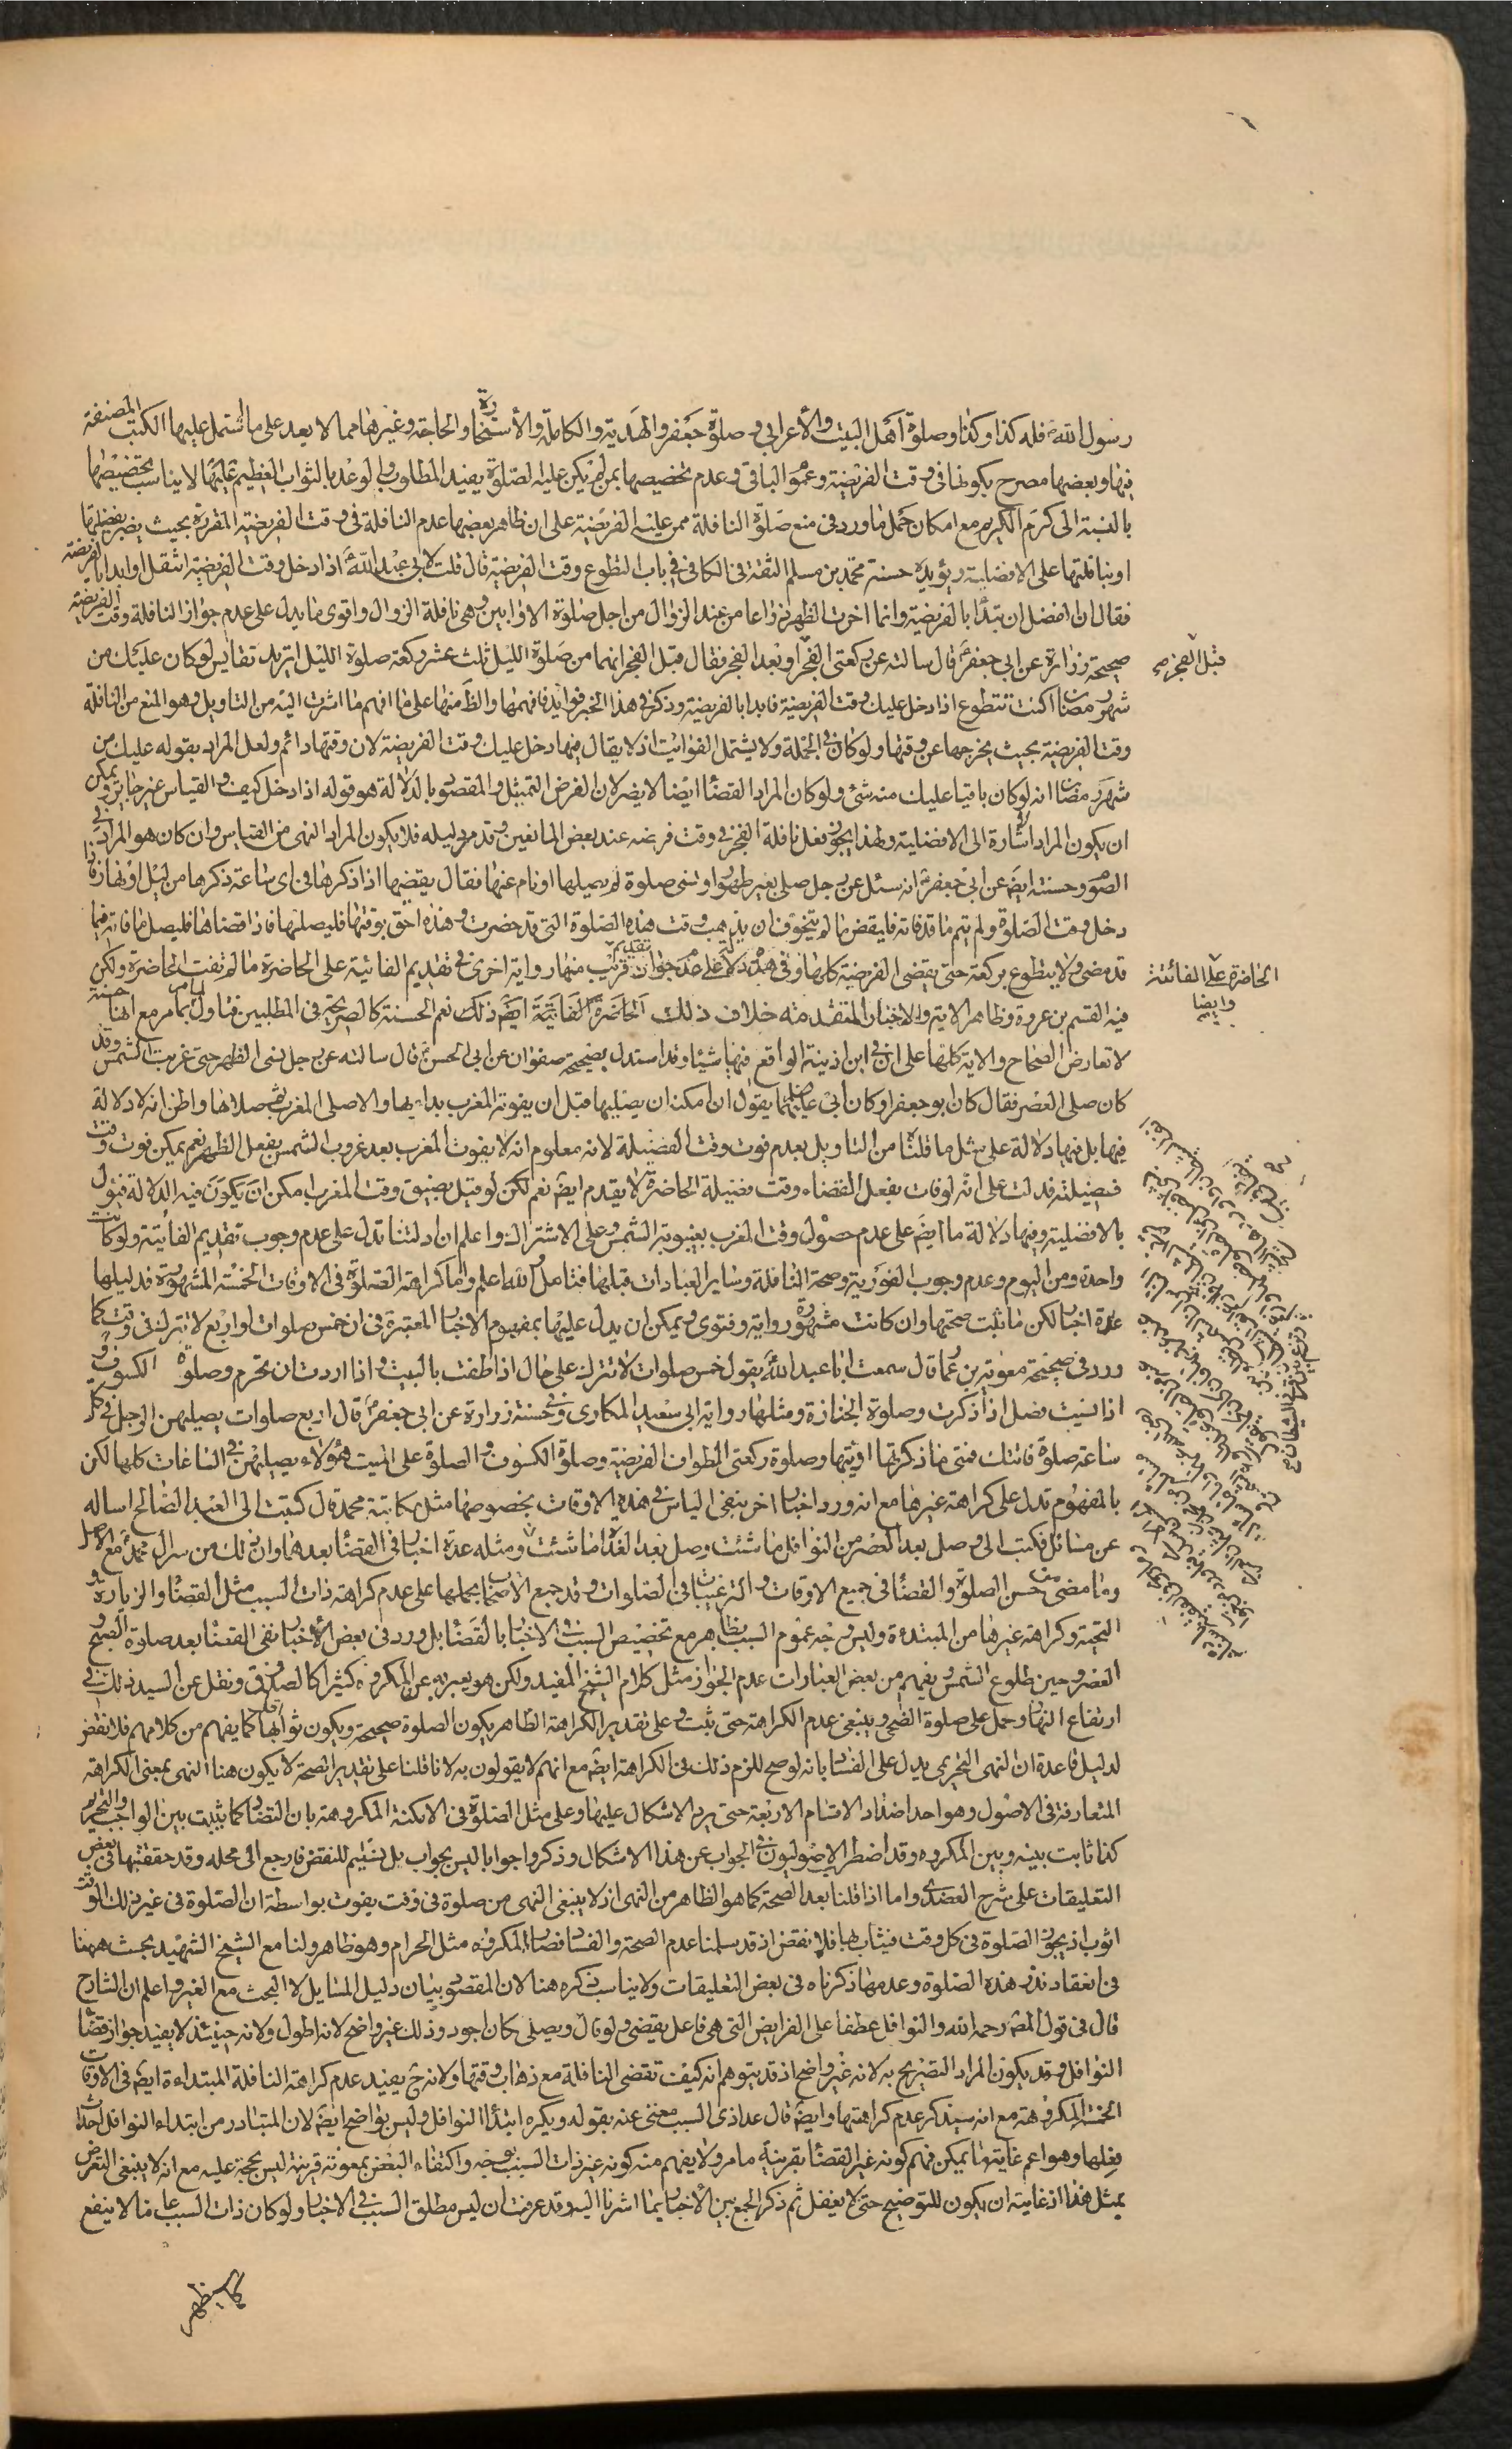 رسول الله ص فله كذا وكذا وصلوة اهل البيت والأعرابي وصلوة جعفر والهدية والكاملة والأستخارة والحاجة وغيرها مما لا يعد على ما اشتمل عليها الكتب المصنفة
فيها وبعضها مصرح بكونها في وقت الفريضة وعموم الباقي وعدم تخصيصها بمن لم يكن عليه الصلوة يفيد المطلوب والوعد بالثواب العظيم عليها لا يناسب تخصيصها
بالنسبة الى كرم الكريم مع امكان حمل ما ورد في منع صلوة النافلة ممن عليه الفريضة على ان ظاهر بعضها عدم النافلة في وقت الفريضة المقررة بحيث يضر بفضلها
او بنافلتها على الافضلية ويؤيده حسنة محمد بن مسلم الثقة في الكافي في باب التطوع وقت الفريضة قال قلت لابي عبد الله ع اذا دخل وقت الفريضة اتنفل او ابدا بالفريضة
فقال ان الفضل ان تبدأ بالفريضة وانما اخرت الظهر ذراعا من عند الزوال من اجل صلوة الاوابين وهي نافلة الزوال واقوى ما يدل على عدم جواز النافلة وقت الفريضة
صحيحة زرارة عن ابي جعفر ع قال سالته عن ركعتي الفجر او بعد الفجر فقال قبل الفجر انهما من صلوة الليل ثلث عشر ركعة صلوة الليل اتريد تقايس لو كان عليك من
قبل الفجر صح
شهر رمضان اكنت تتطوع اذا دخل عليك وقت الفريضة فابدا بالفريضة وذكر في هذا الخبر فوايد فافهمها والظ منها على ما افهم ما اشرت اليه من التاويل وهو المنع من النافلة
وقت الفريضة بحيث يخرجها عن وقتها ولو كان في الجملة ولا يشتمل الفوائت اذ لا يقال فيها دخل عليك وقت الفريضة لان وقتها دائم ولعل المراد بقوله عليك من
شهر رمضان انه لو كان باقيا عليك منه شئ ولو كان المراد القضاء ايضا لا يضر لان الغرض التمثيل والمقصود بالدلالة هو قوله اذا دخل كيف والقياس غير جايز ويمكن
ان يكون المراد اشارة الى الافضلية ولهذا يجوز فعل نافلة الفجر في وقت فريضة عند بعض المانعين وقد مر دليله فلا يكون المراد النهي من القياس وان كان هو المراد في
الصوم وحسنته ايض عن ابي جعفر ع انه سئل عن رجل صلى بغير طهور او نسى صلوة لم يصليها او نام عنها فقال يقضيها اذا ذكرها في اي ساعة ذكرها من ليل او نهار فاذا
دخل وقت الصلوة ولم يتم ما قد فاته فليقض ما لم يتخوف ان يذهب وقت هذه الصلوة التي قد حضرت وهذه احق بوقتها فليصلها فاذا قضاها فليصل ما فاته فيما
قد مضى ولا يتطوع بركعة حتى يقضي الفريضة كلها وفي هذه دلالة على عدم جواز تقديم قريب منها رواية اخرى في تقديم الفائتة على الحاضرة ما لم تفت الحاضرة ولكن
الحاضرة على الفائتة
وايضا
فيه القسم بن عروة وظاهر الاية والاخبار المتقدمة خلاف ذلك الحاضرة الفائتة ايض ذلك نعم الحسنة كالصريحة في المطلبين فتاول بما مر مع انها حسنة
لا تعارض الصحاح والاية كلها على ان في ابن اذينة الواقع فيها شيئا وقد استدل بصحيحة صفوان عن ابي الحسن ع قال سالته عن رجل نسى الظهر حتى غربت الشمس وقد
كان صلى العصر فقال كان ابو جعفر او كان ابي عليهما يقول ان امكنه ان يصليها قبل ان يفوته المغرب بدا بها والا صلى المغرب ثم صلاها واظن انه لا دلالة
فيها بل فيها دلالة على مثل ما قلنا من التاويل بعدم فوت وقت الفضيلة لانه معلوم انه لا يفوت المغرب بعد غروب الشمس بفعل الظهر نعم يمكن فوت وقت
فضيلته فدلت على انه لو فات بفعل القضاء وقت فضيلة الحاضرة لا يقدم ايض نعم لكن لو قيل بضيق وقت المغرب امكن ان يكون فيه الدلالة فنقول
بالافضلية وفيها دلالة ما ايض على عدم حصول وقت المغرب بغيبوبة الشمس وعلى الاشتراك واعلم ان ادلتنا تدل على عدم وجوب تقديم الفائتة ولو كانت
واحدة ومن اليوم وعدم وجوب الفورية وصحة النافلة وساير العبادات قبلها فتامل والله اعلم واما كراهة الصلوة في الاوقات الخمسة المشهورة فدليلها
عدة اخبار لكن ما ثبت صحتها وان كانت مشهورة رواية وفتوى ويمكن ان يدل عليها بمفهوم الاخبار المعتبرة في ان خمس صلوات او اربع لا تترك في وقت كما
ورد في صحيحة معوية بن عمار قال سمعت ابا عبد الله ع يقول خمس صلوات لا تترك على حال اذا طفت بالبيت واذا اردت ان تحرم وصلوة الكسوف و
اذا نسيت فصل اذا ذكرت وصلوة الجنازة ومثلها رواية ابي سعيد المكاري وفي حسنة زرارة عن ابي جعفر ع قال اربع صلوات يصليهن الرجل في كل
ساعة صلوة فاتتك فمتى ما ذكرتها اديتها وصلوة ركعتي الطواف الفريضة وصلوة الكسوف والصلوة على الميت هؤلاء يصليهن في الساعات كلها لكن
بالمفهوم تدل على كراهة غيرها مع انه ورد اخبار اخر بنفي الباس في هذه الاوقات بخصوصها مثل مكاتبة محمد قال كتبت الى العبد الصالح اساله
عن مسائل فكتب الي وصل بعد العصر من النوافل ما شئت وصل بعد الغداة ما شئت ومثله عدة اخبار في القضاء بعدهما وان ذلك من سر ال محمد ع مع الاصل
وما مضى من حسن الصلوة والقضاء في جميع الاوقات والترغيبات في الصلوات وقد جمع الاصحاب بحملها على عدم كراهة ذات السبب مثل القضاء والزيارة و
التحية وكراهة غيرها من المبتدءة وليس وجه عموم السبب بظاهر مع تخصيص السبب في الاخبار بالقضاء بل ورد في بعض الأخبار نفي القضاء بعد صلوة الصبح و
العصر وحين طلوع الشمس ويفهم من بعض العبارات عدم الجواز مثل كلام الشيخ المفيد ولكن هو يعبر به عن المكروه كثيرا كالصدوق ونقل عن السيد ذلك في
ارتفاع النهار وحمل على صلوة الضحى وينبغي عدم الكراهة حتى يثبت وعلى تقدير الكراهة الظاهر يكون الصلوة صحيحة ويكون ثوابها اقل كما يفهم من كلامهم فلا نقض
لدليل قاعدة ان النهي التحريمي يدل على الفساد بانه لو صح للزم ذلك في الكراهة ايض مع انهم لا يقولون به لانا قلنا على تقدير الصحة لا يكون هنا النهي بمعنى الكراهة
المتعارفة في الاصول وهو احد اضداد الاقسام الاربعة حتى يرد الاشكال عليها وعلى مثل الصلوة في الامكنة المكروهة بان التضاد كما يثبت بين الواجب والتحريم
كذا ثابت بينه وبين المكروه وقد اضطر الاصوليون في الجواب عن هذا الاشكال وذكروا جوابا ليس بجواب بل تسليم للنقض فارجع الى محله وقد حققتها في بعض
التعليقات على شرح العضدي واما اذا قلنا بعد الصحة كما هو الظاهر من النهي اذ لا ينبغي النهي من صلوة في وقت يفوت بواسطة ان الصلوة في غير ذلك الوقت
اثوب اذ يجوز الصلوة في كل وقت فيثاب بها فلا نقض اذ قد سلمنا عدم الصحة والفساد فصار المكروه مثل الحرام وهو ظاهر ولنا مع الشيخ الشهيد بحث ههنا
في انعقاد نذر هذه الصلوة وعدمها ذكرناه في بعض التعليقات ولا يناسب ذكره هنا لان المقصود بيان دليل المسايل لا البحث مع الغير واعلم ان الشارح
قال في قول المص رحمه الله والنوافل عطفا على الفرايض التي هي فاعل يقضي ولو قال ويصلي كان اجود وذلك غير واضح لانه اطول ولانه حينئذ لا يفيد جواز قضاء
النوافل وقد يكون المراد التصريح به لانه غير واضح اذ قد يتوهم انه كيف تقضى النافلة مع ذهاب وقتها ولانه ح يفيد عدم كراهة النافلة المبتداءة ايض في الاوقات
الخمسة المكروهة مع انه سيذكر عدم كراهتها وايض قال عدا ذي السبب مغني عنه بقوله ويكره ابتدأ النوافل وليس بواضح ايض لان المتبادر من ابتداء النوافل احداث
فعلها وهو اعم غايتها يمكن فهم كونه غير القضاء بقرينة ما مر ولا يفهم منه كونه غير ذات السبب بوجه واكتفاء البعض بمعونة قرينة ليس بحجة عليه مع انه لا ينبغي التعرض
بمثل هذا اذ غايته ان يكون للتوضيح حتى لا يغفل ثم ذكر الجمع بين الاخبار بما اشرنا اليه وقد عرفت ان ليس مطلق السبب في الاخبار ولو كان ذات السبب عاما لا ينفع